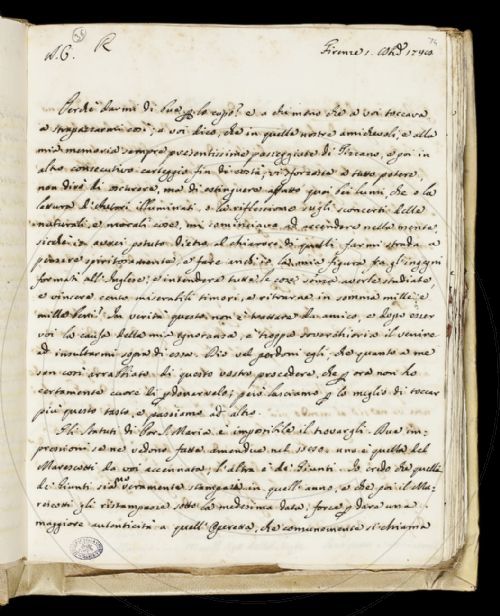 A. C. R
Firenze 1. 1740.
Perchè darmi di
a strapazzarmi così; a voi dico, che in quelle nostre amichevoli, e alla
mia memoria sempre presentissime passeggiate di Fiesano, e poi in
altro consecutivo carteggio fin di costà, vi sforzaste a tutto potere,
non dirò di oscurare, ma di estinguere affatto quei lumi, che o la
lettura d'Autori illuminati, o la riflessione sugli sconcerti delle
naturali, e morali cose, mi cominciavano ad accendere nella mente,
sicchè io avrei potuto dietro al chiarore di quelli farmi strada a
pensare spiritosamente, e fare anch'io la mia figura fra gl'ingegni
formati all'Inglese; e intendere tutte le cose senza averle studiate
e vincere cento timori, e ritrarne in somma mille, e
mille beni? In verità questo non è trattare da amico, e dopo esser
voi la causa della mia ignoranza, è troppa soverchieria il venire
ad insultarmi sopra di essa. Dio vel perdoni egli, che quanto a me
son così arrabbiato di questo vostro procedere, che per ora non ho
certamente cuore di perdonarvelo; però lasciamo per lo meglio di toccar
più questo tasto, e passiamo ad altro.
Gli Statuti di Maria è impossibile il trovargli. Due im-
pressioni se ne vedono fatte amendue nel uno è quella del
Marescotti da voi accennata, l'altra è de' Giunti. Io credo che quella
de' Giunti sia veramente stampata in quell'anno, e che poi il Ma-
rescotti gli ristampasse sotto la medesima data; forse per dare una
maggiore autenticità a quell'Operetta, che comunemente si chiama